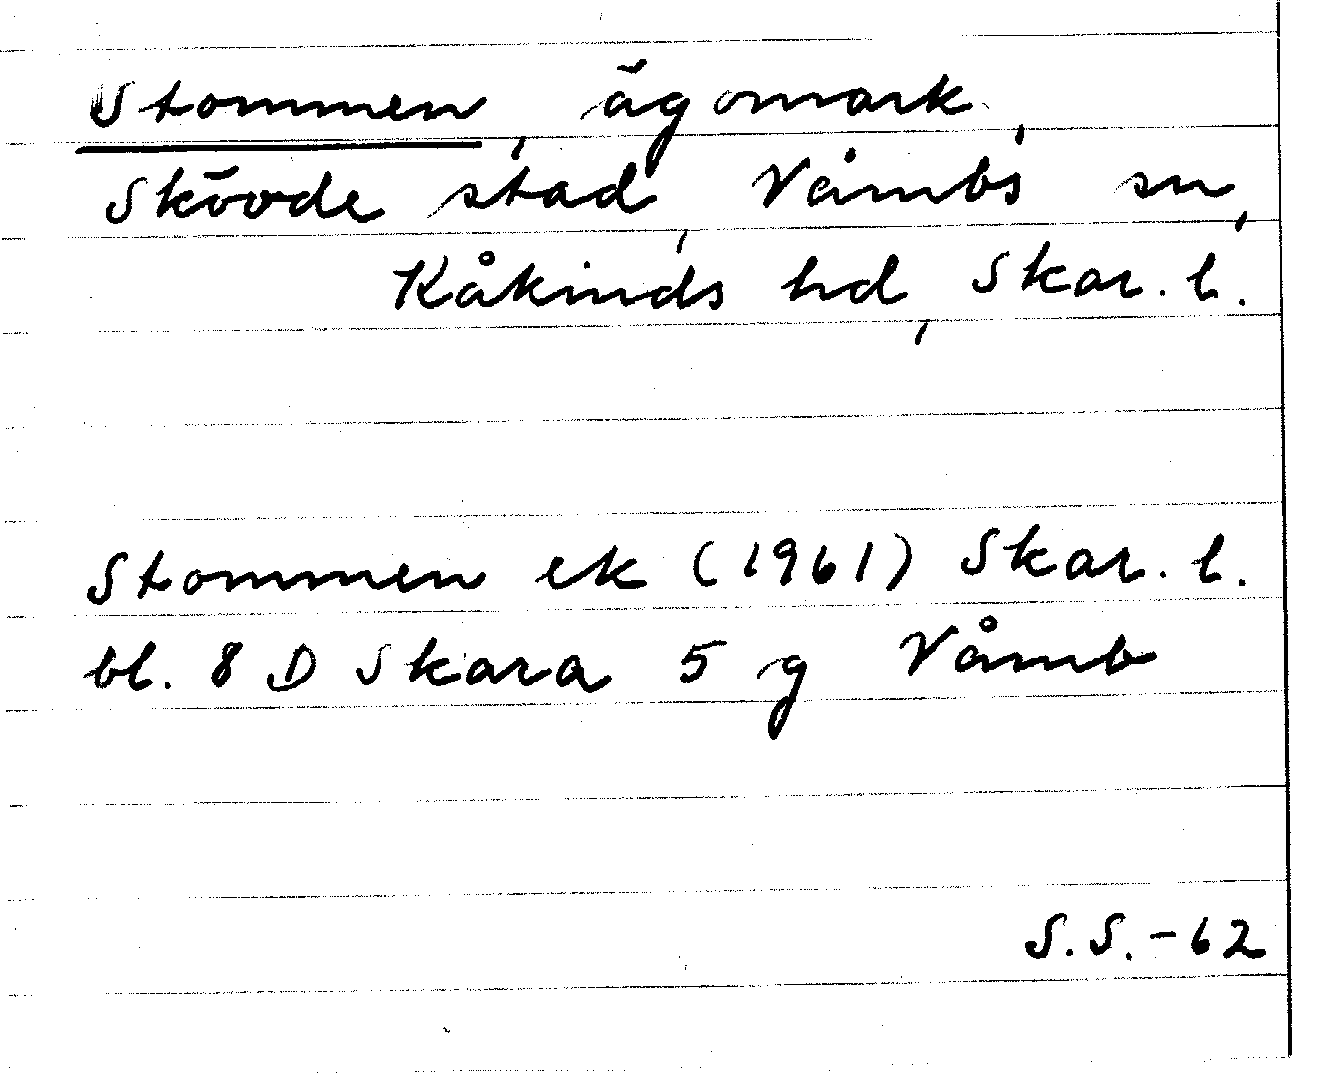 Stommen, ägomark,
Skövde stad, Våmbs sn,
Kåkinds hd, Skar. l.
Stommen ek (1961) Skar. l.
bl. 8 D Skara 5 g Våmb
S.S.-62